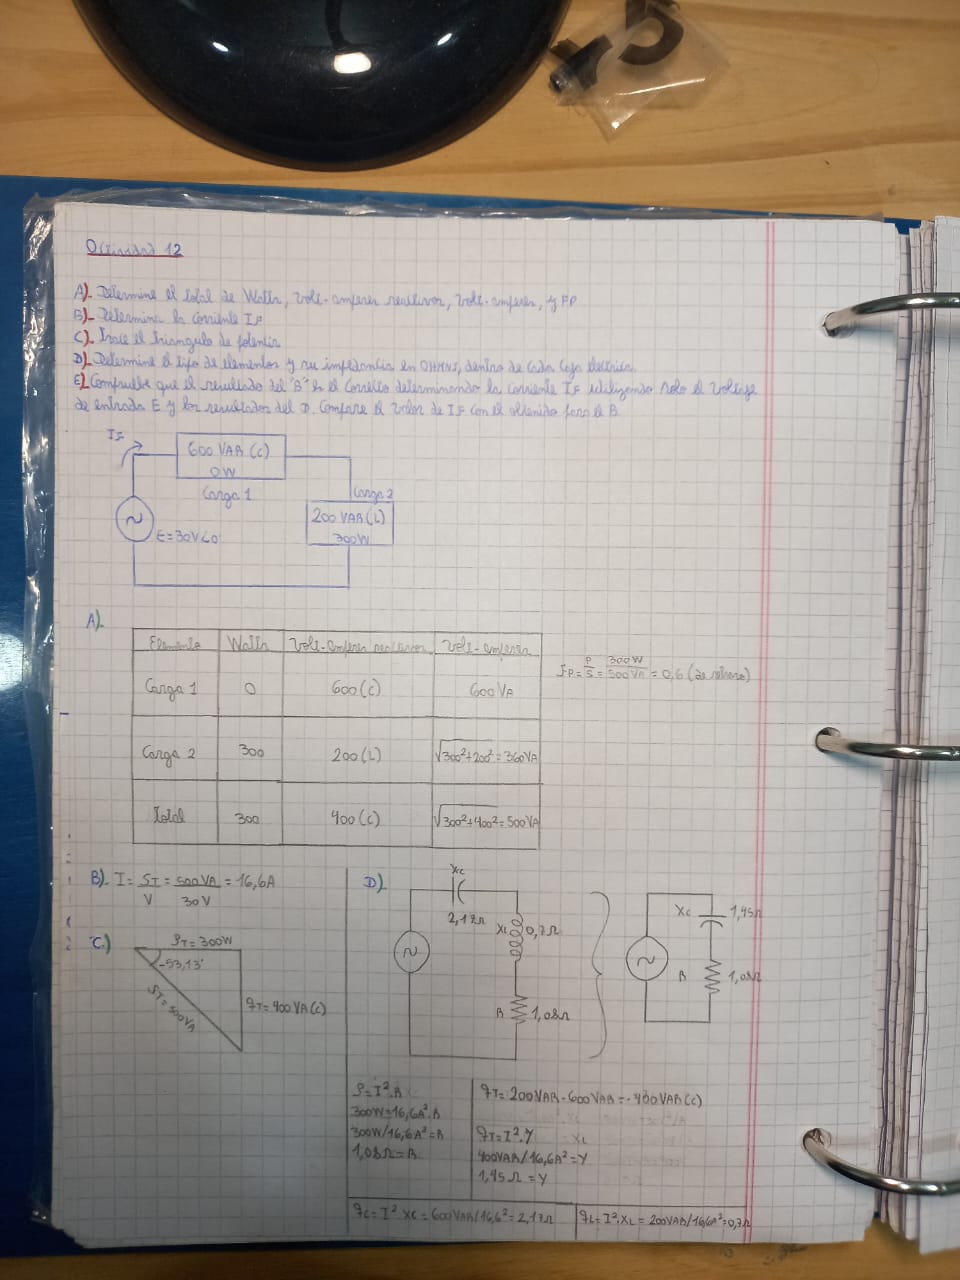 Actividad 12
A). Determine el total de Watts, Volt-amperes reactivos, Volt-amperes, y FP
B)- Determina la corriente IF
C)- Trace el triangulo de potencia
D)- Determine el tipo de elementos y su impedancia en OHMNS, dentro de cada caja electrica.
E) Compruebe que el resultado del "B" es el correcto determinando la corriente IF utilizando solo el voltaje
de entrada E y los resultados del D. Compare el valor de IF con el obtenido para el B
IF
600 VAR (C)
0W
Carga 1
Carga 2
200 VAR (L)
300W
E=30V∠0
A).
Elemento Watts Volt-amperes reactivos Volt-amperes
Carga 1 0 600(C) 600VA
Carga 2 300 200(L) √300²+200² = 360VA
Total 300 400(C) √300²+400² = 500VA
F.P= P/S = 300W/500VA = 0,6
B). I = ST/V = 500VA/30V = 16,6A
C.)
PT = 300W
-53,13°
ST = 500VA
qT = 400 VA(C)
D).
Xc
2,17Ω
XL
0,7Ω
R
1,08Ω
Xc
1,45Ω
R
1,08Ω
P=I².R
300W=16,6A².R
300W/16,6A²=R
1,08Ω=R
qT= 200VAR-600VAR=-400VAR(C)
qT=I².Y
400VAR/16,6A²=Y
1,45Ω=Y
qC=I².XC=600VAR/16,6²=2,17Ω
qL=I².XL=200VAR/16,6A²=0,7Ω